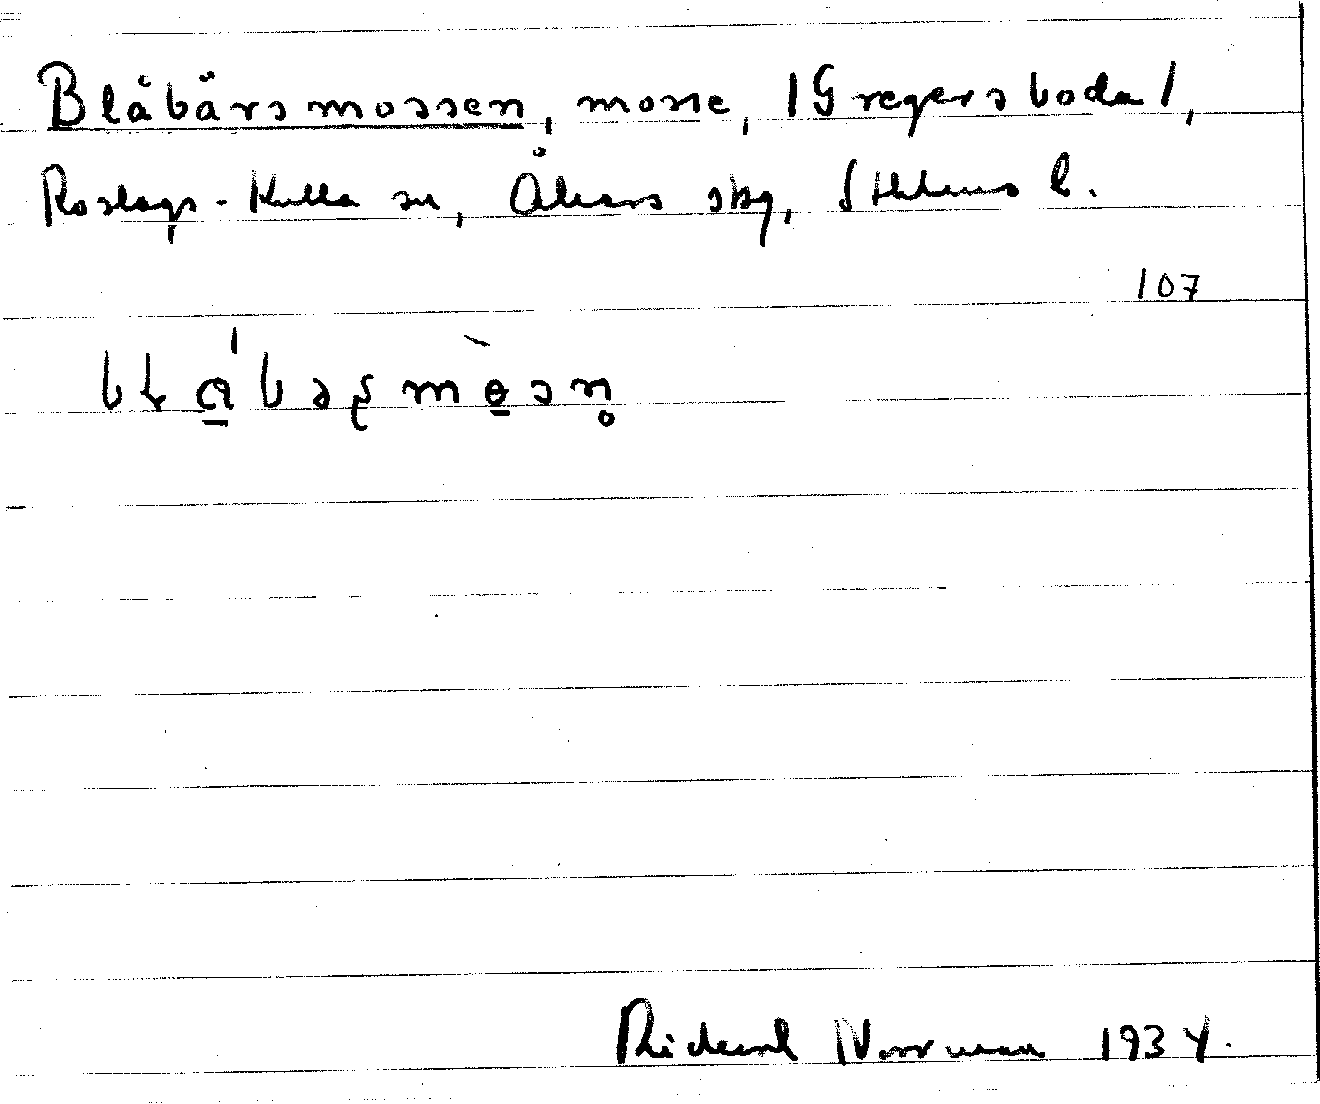 Blåbärsmossen, mosse, /Gregersboda/,
Roslags-Kulla sn, Åkers skg, Sthlms l.
107
Rickard Norrman 1934.